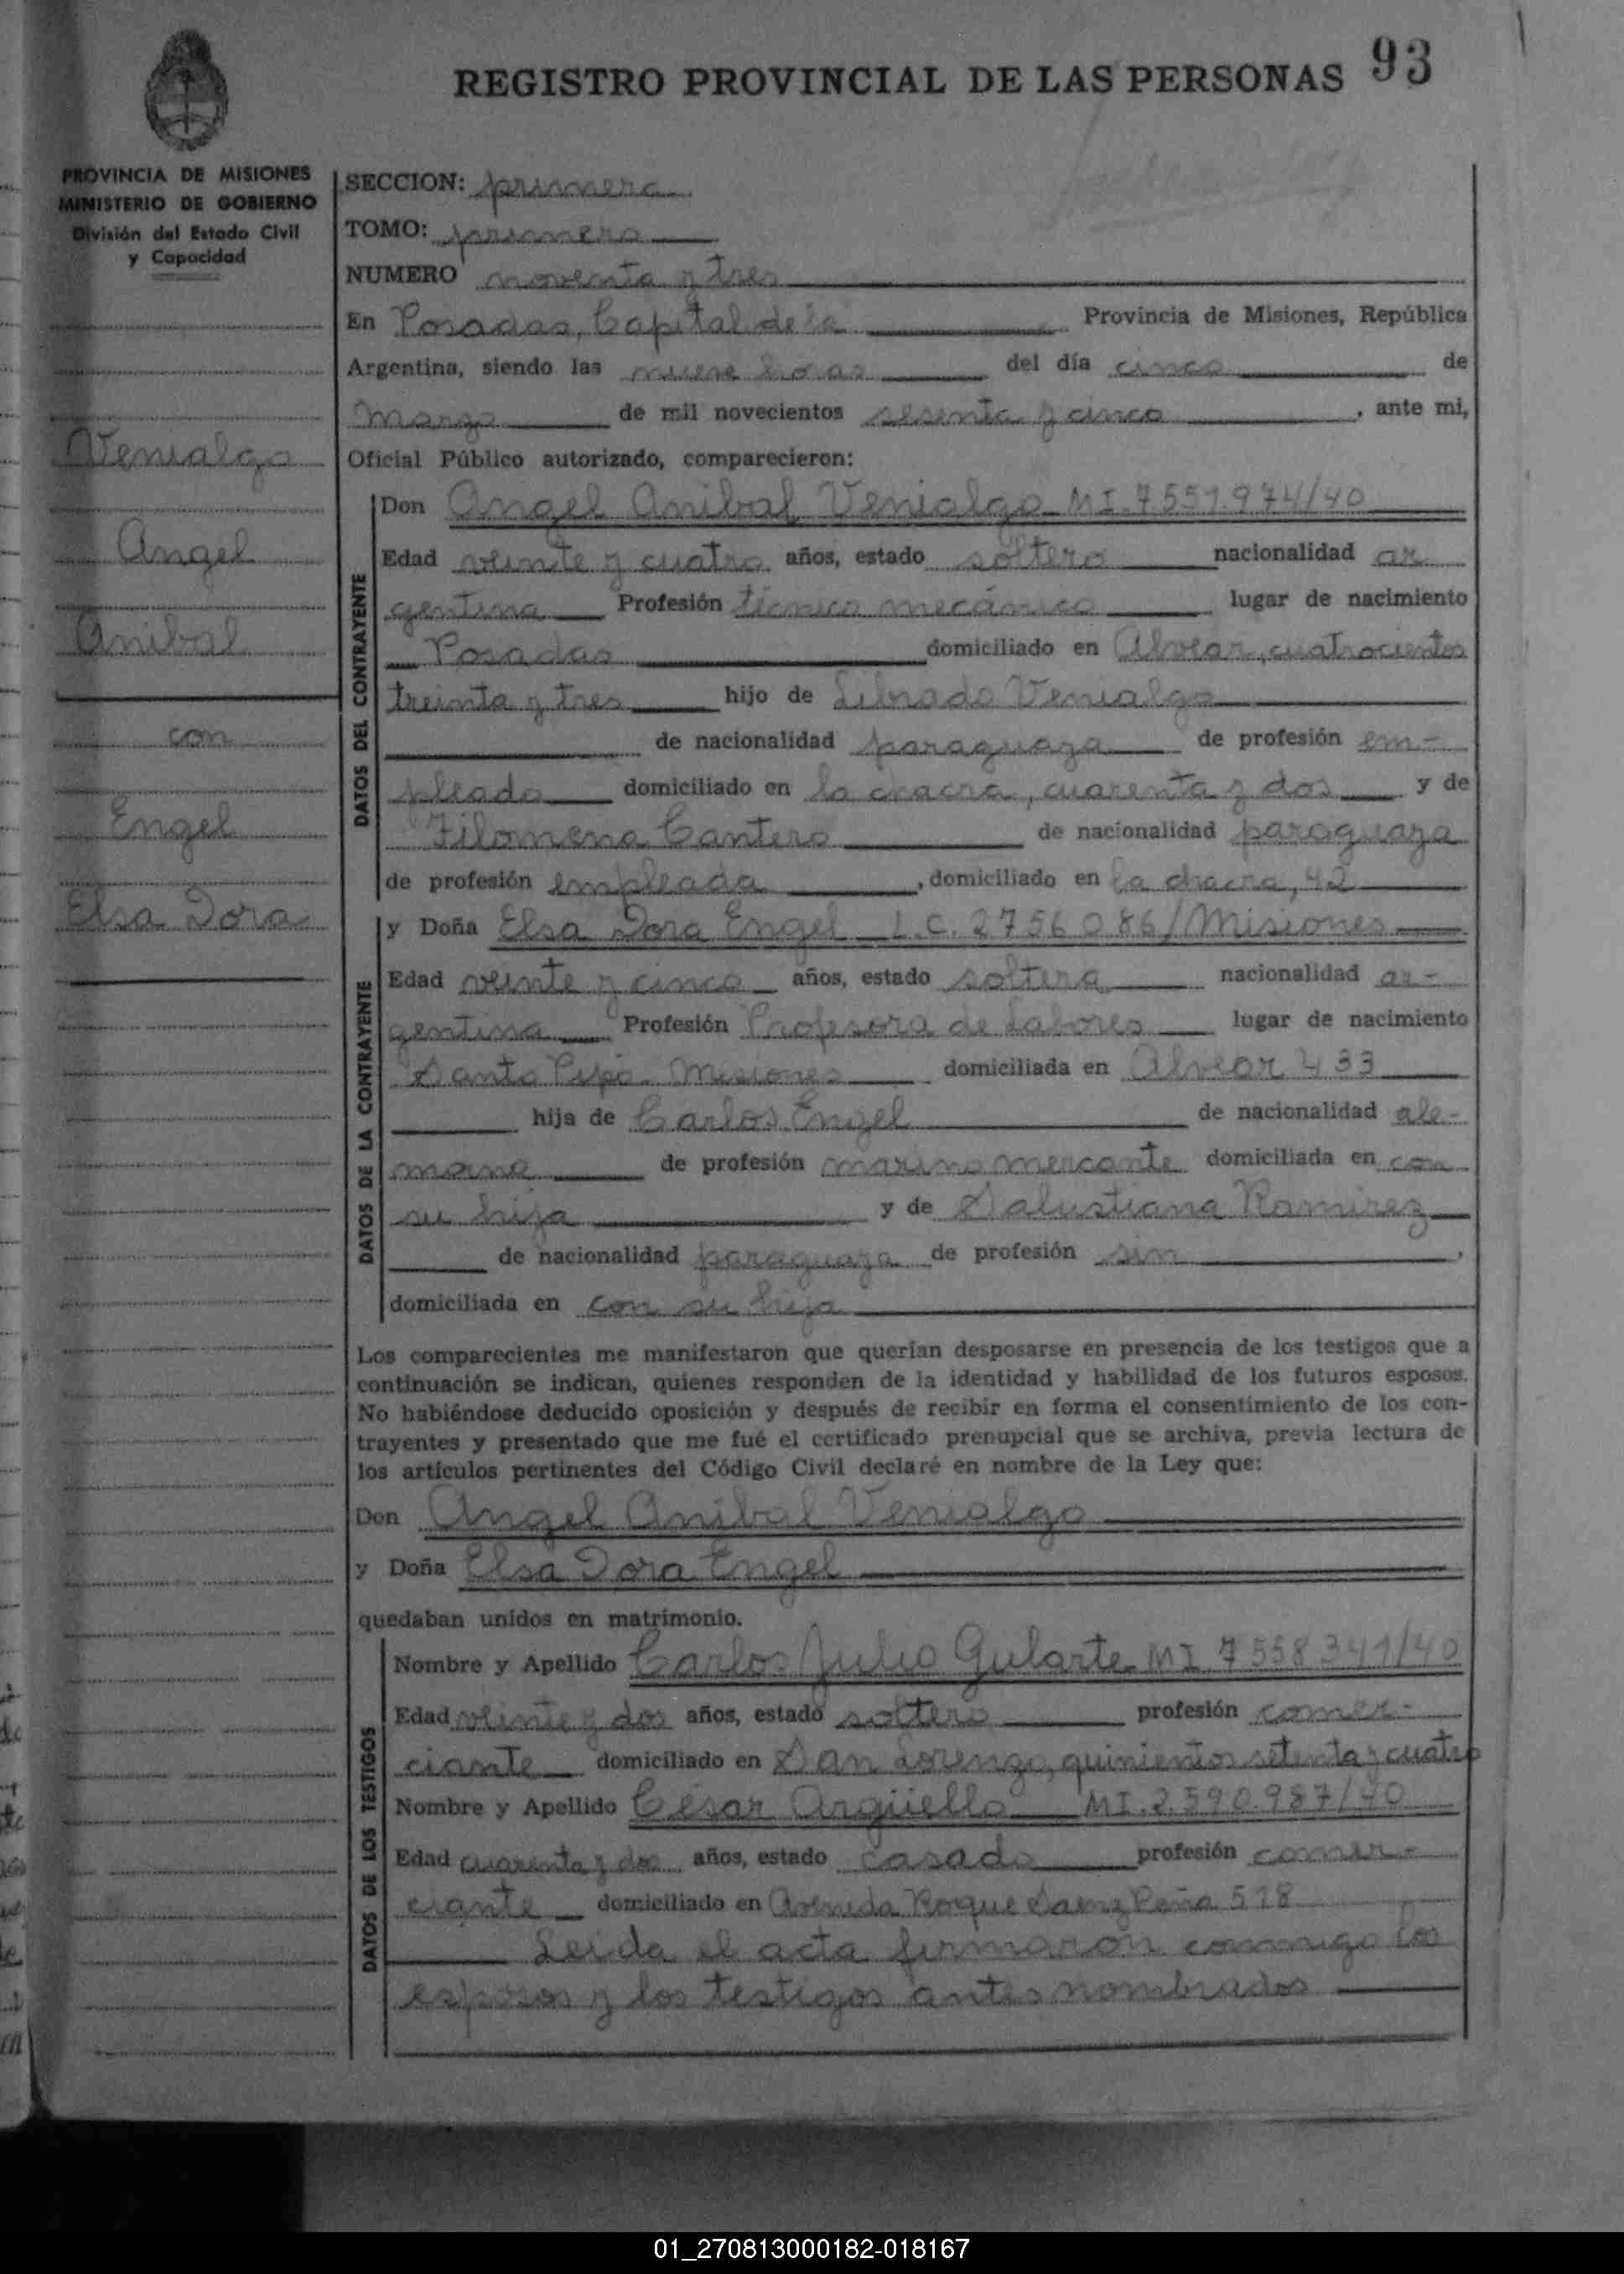 REGISTRO PROVINCIAL DE LAS PERSONAS 93
PROVINCIA DE MISIONES
MINISTERIO DE GOBIERNO
División del Estado Civil
y Capacidad
Venialgo
Angel
Anibal
con
Engel
Elsa Dora
SECCION: primera
TOMO: primero
NUMERO noventa y tres
En Posadas, Capital de la Provincia de Misiones, República
Argentina, siendo las nueve horas del día cinco de
marzo de mil novecientos sesenta y cinco, ante mi,
Oficial Público autorizado, comparecieron:
DATOS DEL CONTRAYENTE
Don Angel Anibal Venialgo MI.7551.974/40
Edad veinte y cuatro años, estado soltero nacionalidad ar
gentina Profesión técnico mecánico lugar de nacimiento
Posadas domiciliado en Alvear, cuatrocientos
treinta y tres hijo de Librado Venialgo
de nacionalidad paraguaya de profesión em-
pleado domiciliado en la chacra, cuarenta y dos y de
Filomena Cantero de nacionalidad paraguaya
de profesión empleada, domiciliado en la chacra, 42
DATOS DE LA CONTRAYENTE
y Doña Elsa Dora Engel L.C. 2756086/Misiones
Edad veinte y cinco años, estado soltera nacionalidad ar-
gentina Profesión Profesora de Labores lugar de nacimiento
Santo Pipó. Misiones domiciliada en Alvear 433
hija de Carlos Engel de nacionalidad ale-
mana de profesión marino mercante domiciliada en con
su hija y de Salustiana Ramirez
de nacionalidad paraguaya de profesión sin,
domiciliada en con su hija
Los comparecientes me manifestaron que querían desposarse en presencia de los testigos que a
continuación se indican, quienes responden de la identidad y habilidad de los futuros esposos.
No habiéndose deducido oposición y después de recibir en forma el consentimiento de los con-
trayentes y presentado que me fué el certificado prenupcial que se archiva, previa lectura de
los artículos pertinentes del Código Civil declaré en nombre de la Ley que:
Don Angel Anibal Venialgo
y Doña Elsa Dora Engel
quedaban unidos en matrimonio.
DATOS DE LOS TESTIGOS
Nombre y Apellido Carlos Julio Gularte MI 7558341/40
Edad veinte y dos años, estado soltero profesión comer-
ciante domiciliado en San Lorenzo, quinientos setenta y cuatro
Nombre y Apellido César Argüello MI.2.590.987/40
Edad cuarenta y dos años, estado casado profesión comer-
ciante domiciliado en Avenida Roque Saenz Peña 518
Leida el acta firmaron conmigo los
esposos y los testigos antes nombrados
01_270813000182-018167